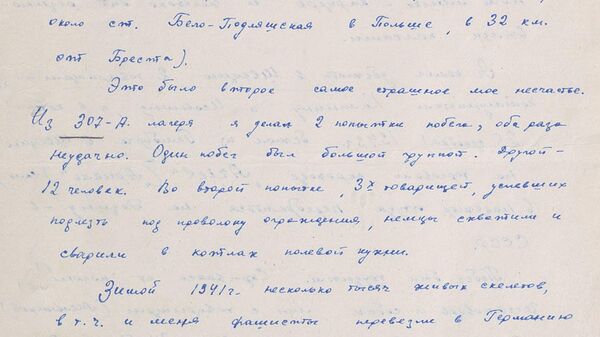 около ст. Бего-Подляшская в Польше, в 32 км.
от Бреста).
Это было второе самое страшное мое несчастье.
Из 307-А. лагеря я делал 2 попытки побега, оба раза
неудачно. Один побег был большой группой. Другой -
12 человек. Во второй попытке, 3х товарищей, успевших
подлезть под проволоку ограждения, немцы схватили и
сварили в котлах полевой кухни.
Зимой 1941г. несколько тысяч живых скелетов,
в т.ч. и меня фашисты перевезли в Германию